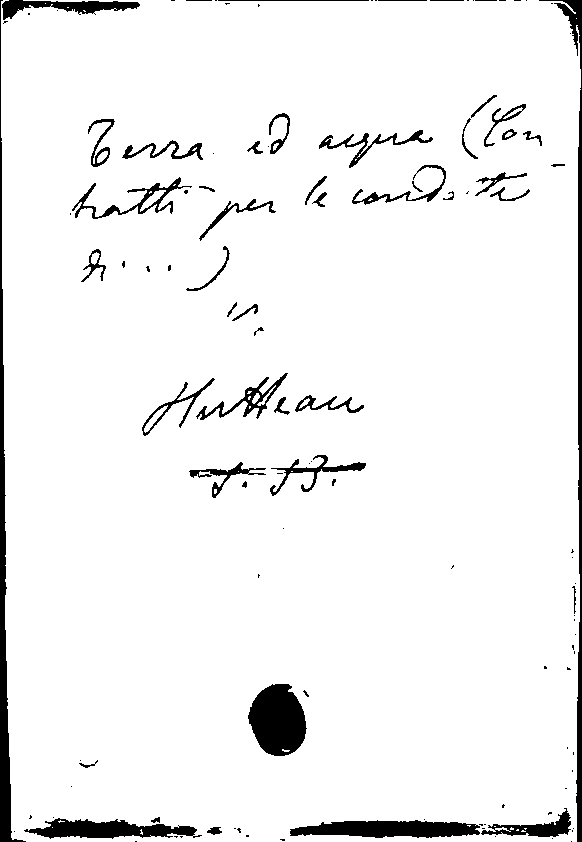 Terra ed acqua (Con
tratti per le condotte
di ...)
v.
Hutteau